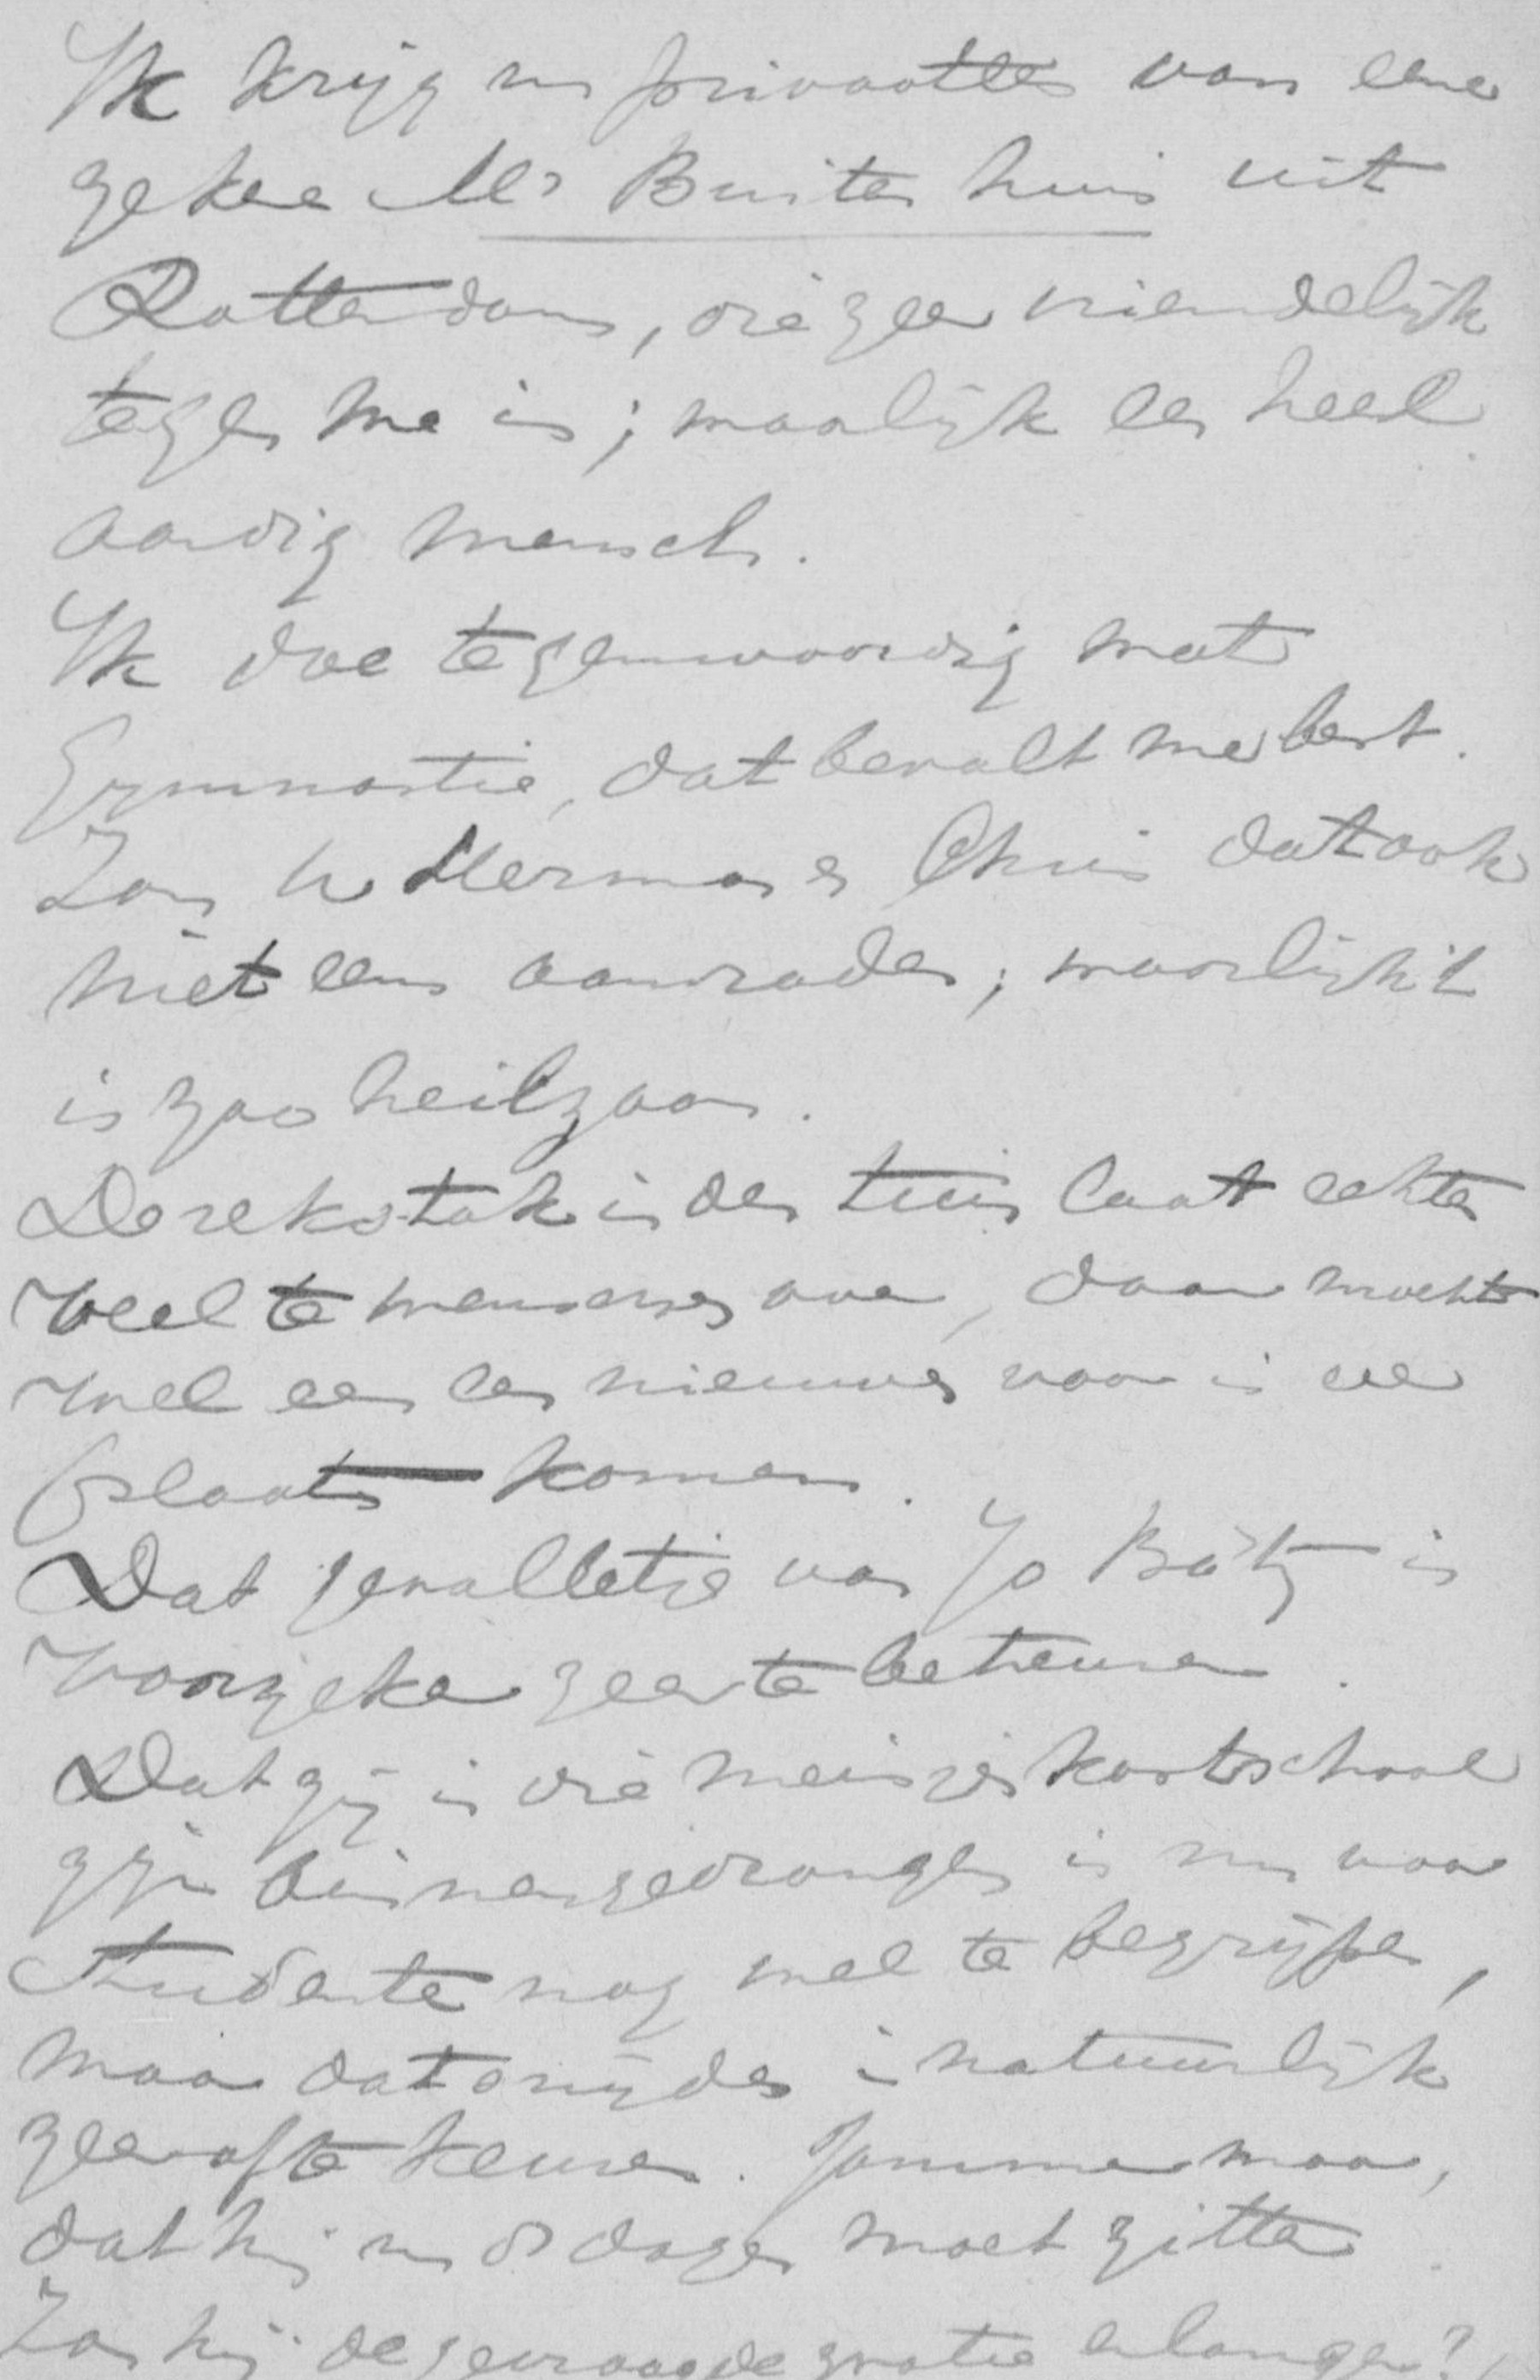 Ik krijg nu privaatles van eene
zekere Mr Buitenhuis uit
Rotterdam, die zeer vriendelijk
tegen me is; waarlijk een heel
aardig mensch.
Ik doe tegenwoordig met
Gymnastie, dat bevalt me best.
Zou u Herman en Chris dat ook
niet eens aanraden; waarlijk 't
is zoo heilzaam.
De rekstok in den tuin laat echter
veel te wenschen over, daar mocht
wel een een nieuwe voor in de
plaats komen.
Dat gevalletje van Jo Bätz is
voorzeker zeer te betreuren.
Dat zij in die meisjeskostschool
zijn binnengedrongen is nu voor
studenten nog wel te begrijpen,
maar dat snijden is natuurlijk
zeer af te keuren. Jammer maar,
dat hij nu 8 dagen moet zitten.
Zou hij de gevraagde gratie erlangen?